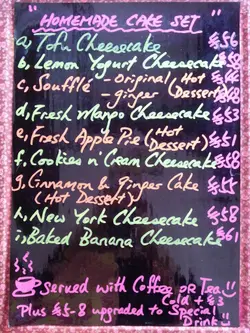 "HOMEMADE CAKE SET"
a, Tofu Cheesecake $56
b, Lemon Yogurt Cheesecake $58
c, Soufflé - Original (Hot
- ginger (Dessert)
d, Fresh Mango Cheesecake $63
e, Fresh Apple Pie (Hot Dessert) $51
f, Cookies n' Cream Cheesecake $58
g, Cinnamon & Ginger Cake
(Hot Dessert)
h, New York Cheesecake $58
i, Baked Banana Cheesecake $61
Served with Coffee or Tea
Cold + $3
Plus $5-8 upgraded to Special
Drink